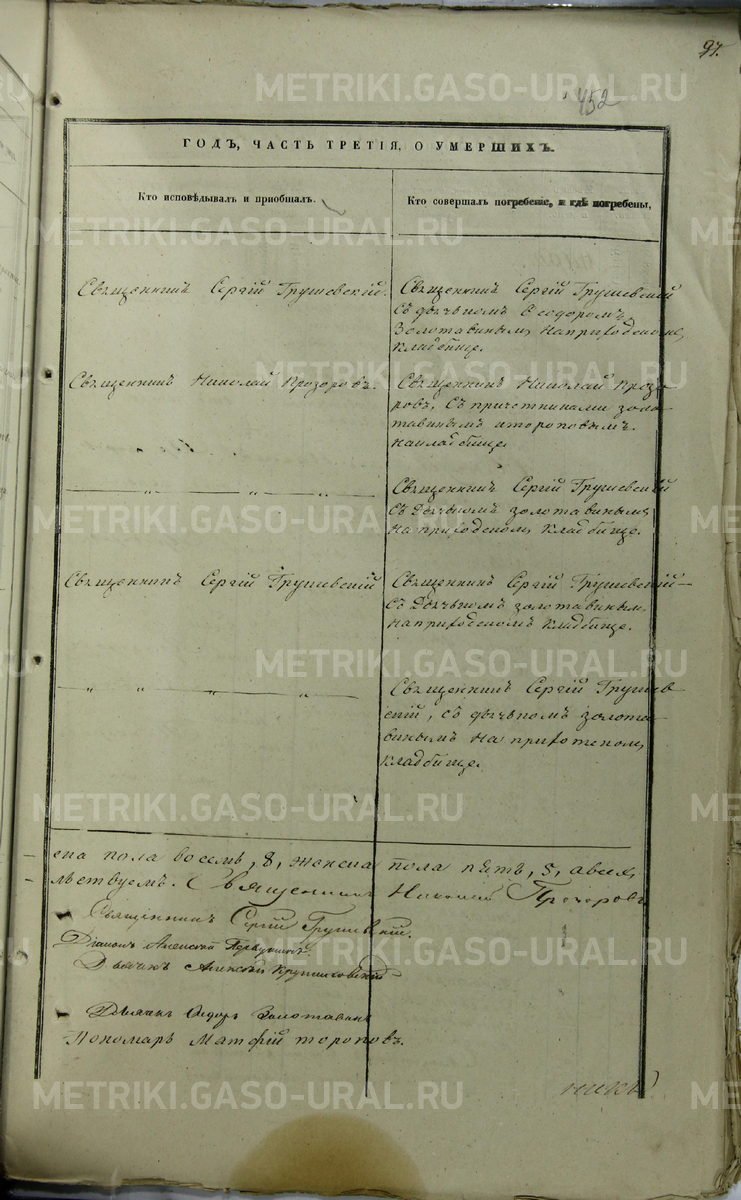 97.
452
ГОДЪ, ЧАСТЬ ТРЕТІЯ, О УМЕРШИХЪ.
Кто исповѣдывалъ и пріобщалъ.
Кто совершалъ погребеніе, и гдѣ погребены,
Священникъ Сергій Грушевскій.
Священникъ Сергій Грушевскій
съ дьячкомъ Ѳеодоромъ
Золотавинымъ на приходскомъ
кладбище.
Священникъ Николай Прозоровъ.
Священникъ Николай Прозо
ровъ, съ причетниками Золо
тавинымъ и Тороповымъ
на кладбище.
— „ — „ — „ —
Священникъ Сергій Грушевскій
съ Дьячкомъ Золотавинымъ
на приходскомъ кладбище.
Священникъ Сергій Грушевскій
Священникъ Сергій Грушевскій —
съ Дьячкомъ Золотавинымъ
на приходскомъ кладбище.
— „ „ — „ — „ —
Священникъ Сергій Грушев
скій, съ дьячкомъ Золота
винымъ на приходскомъ
кладбище.
ска пола восемь, 8, женска пола пять, 5, а всех
льствуемъ. Священникъ Николай Прозоровъ
Священникъ Сергій Грушевскій.
Діаконъ Алексей
Дьячекъ Алексей
Дьячекъ Федоръ Золотавинъ
Пономарь Матфій Тороповъ.
ники
METRIKI.GASO-URAL.RU